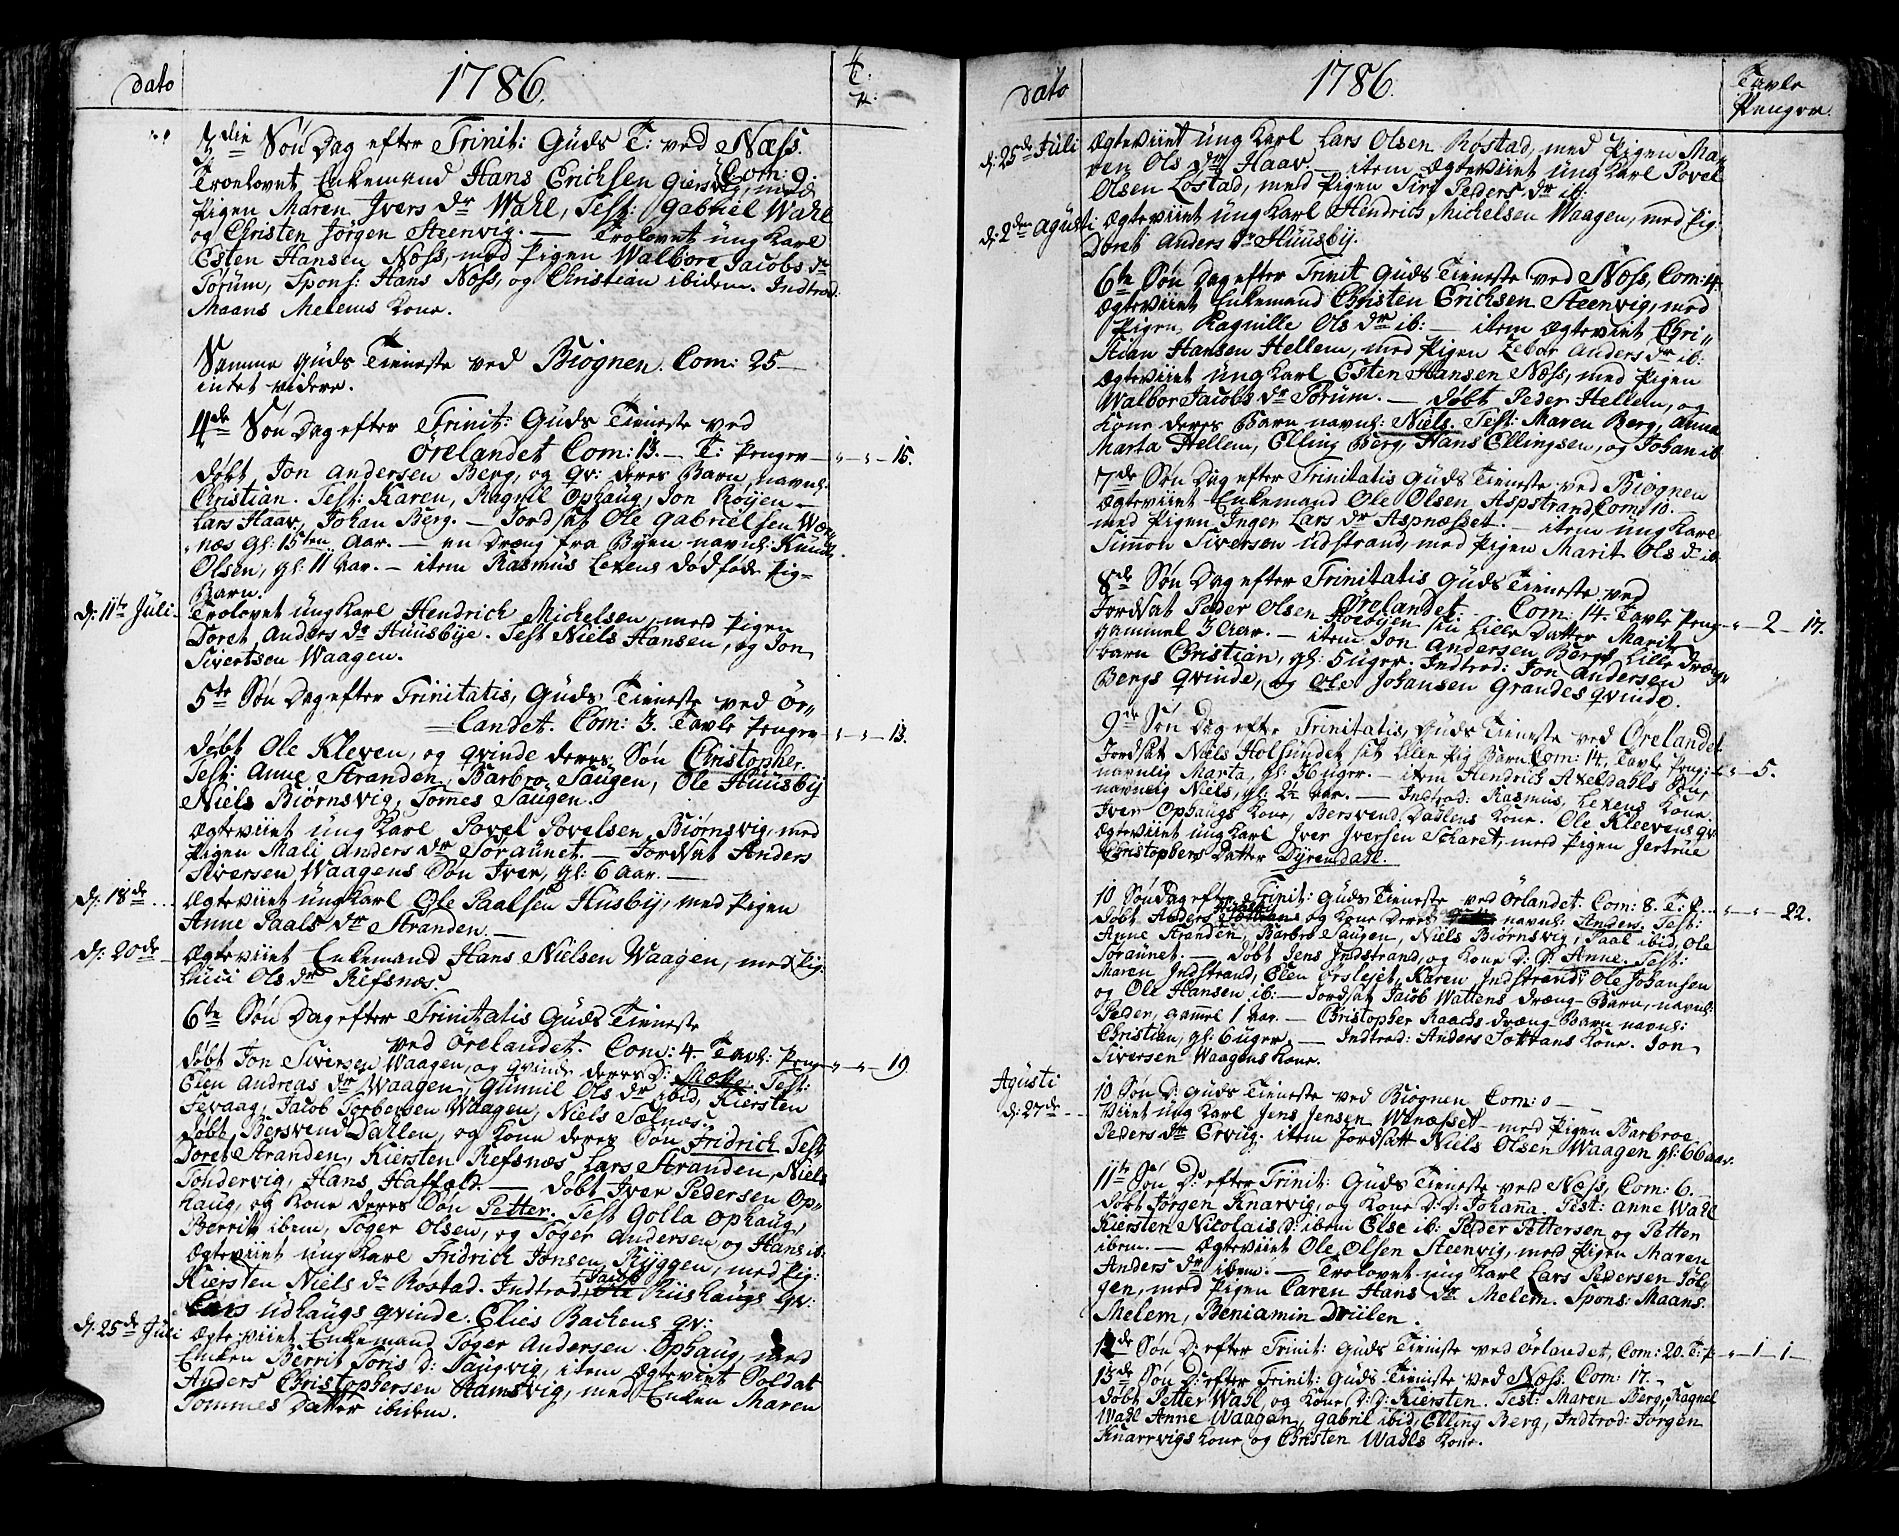 dato 1786. T: P:
3die Søn Dag efter Trinit: Guds T: ved Næss.
Com: 9.
Troelovet Enkemand Hans Erichsen Giersvig, med
Pigen Maren Ivers dr Wahl, Test: Gabriel Wahl
og Christen Jörgen Steenvig. — Trolovet ung Karl
Esten Hansen Næss, med Pigen Walbore Jacobs dr
Sörum, Spons: Hans Næss, og Christian ibidem. Indtrod:
Maans Melems Kone.
Samme Guds Tieneste ved Biognen. Com: 25 —
intet videre.
4de Søn Dag efter Trinit: Guds Tieneste ved
Örelandet Com: 13. — T: Penger — „ — „ — 15.
döbt Jon Andersen Berg, og qv: deres Barn navnl:
Christian. Test: Karen, Ragnil Ophaug, Jon Röijen —
Lars Haav, Johan Berg. — Jordsat Ole Gabrielsen Wæn-
næs gl: 15ten Aar. — en Dræng fra Byen navnl: Knud
Olsen, gl: 11 Aar. — item Rasmus Lexens dödföde Pig-
Barn.
d: 11te Juli Trolovet ung Karl Hendrich Michelsen, med Pigen
Doret Anders dr Huusbye. Test Niels Hansen, og Jon
Sivertsen Waagen.
5te Søn Dag efter Trinitatis, Guds Tieneste ved Ör-
landet. Com: 3. Tavle Penger — „ — „ — 13.
döbt Ole Kleven, og qvinde deres Søn Christopher.
Test: Anne Stranden, Barbro Saugen, Ole Huusby
Niels Biörnsvig, Tomes Saugen.
Ægteviiet ung Karl Povel Povelsen Biörnsvig, med
Pigen Mali Anders dr Soraunet. — Jordsat Anders
Siversen Waagens Søn Iver, gl: 6 Aar. —
d: 18de Ægteviiet ung Karl Ole Paalsen Husby, med Pigen
Anne Paals dr Stranden. —
d: 20de Ægteviiet Enkemand Hans Nielsen Waagen, med Pig:
Luci Ols dr Refsnæs.
6te Søn Dag efter Trinitatis Guds Tieneste
ved Örelandet. Com: 4. Tavl: Penge „ — „ — 19
döbt Jon Siversen Waagen, og qvinde deres D: Mette. Test:
Elen Andreas dr Waagen, Gunnil Ols dr ibid, Kiersten
Fevaag, Jacob Torbersen Waagen, Niels Sælnes.
döbt Bersvend Dallen, og Kone deres Søn Fridrich Test
Doret Stranden, Kiersten Refsnæs Lars Stranden, Niels
Tondervig, Hans Haffeld. — döbt Iver Pedersen Op-
haug, og Kone deres Søn Petter. Test Golla Ophaug,
Berrit ibem, Töger Olsen, og Töger Andersen og Hans ib:
Ægteviiet ung Karl Fridrich Jonsen Rÿggen, med Pig:
Kiersten Niels dr Röstad. Indtrod, Jacob Riishaugs qv:
Lars Udhaugs qvinde. Elies Backens qv:
d: 25de Juli Ægteviiet Enkemand Töger Andersen Ophaug, med
Enken Berrit Joris D: Saugvig, item Ægteviiet Soldat
Anders Christophersen Hamsvig, med Enken Maren
Tommes Datter ibidem.
dato 1786. Tavle Penger.
d: 25de Juli Ægteviiet ung Karl Lars Olsen Röstad, med Pigen Ma-
ren Ols dr Haav. — item Ægteviiet ung Karl Povel
Olsen Löstad, med Pigen Siri Peders dr ib:
d: 2den Agusti Ægteviiet ung Karl Hendrich Michelsen Waagen, med Pig:
Doret Anders dr Huusby.
6te Søn Dag efter Trinit Guds Tieneste ved Næss, Com: 14.
Ægteviiet Enkemand Christen Erichsen Steenvig, med
Pigen Ragnille Ols dr ib: — item Ægteviet Chri-
stian Hansen Hellem, med Pigen Zebor Anders dr ib:
Ægteviiet ung Karl Esten Hansen Næss, med Pigen
Walbor Jacobs dr Sörum. — Döbt Peder Hellem, og
Kone deres Barn navnl: Niels. Test: Maren Berg, Anne
Marta Hellem, Elling Berg, Hans Ellingsen, og Johan ib
7de Søn Dag efter Trinitatis Guds Tieneste ved Biognen
Ægteviiet Enkemand Ole Olsen Aspstrand Com: 10. —
med Pigen Inger Lars dr Aspnæsset. — item ung Karl
Simon Siversen Udstrand, med Pigen Marit Ols dr ib
8de Søn Dag efter Trinitatis Guds Tieneste ved
Örelandet. Com: 14. Tavle Peng — „ — 2 — 17.
Jordsat Peder Olsen Holöijen sin Lille Datter Marit
gammel 3 Aar. — item Jon Andersen Bergs Lille Dræng-
barn Christian, gl: 5 uger. Indtrod: Jon Andersen
Bergs qvinde, og Ole Johansen Grandes qvinde.
9de Søn Dag efte Trinitatis, Guds Tieneste ved Örelandet
Jordsat Niels Holsundet sit Lille Pig Barn Com: 14. Tavl: Peng: — „ — 5.
navnlig Marta, gl: 36 uger. — item Hendrich Axeldahls Søn,
navnlig Niels, gl: 2½ Aar. — Indtrod: Rasmus Lexens Kone.
Iver Ophaugs Kone, Bersvend Dahlens Kone. Ole Kleevens qv
Ægteviiet ung Karl Iver Iversen Scharet, med Pigen Jertrue
Christophers Datter Dÿrendahl.
10 Søn Dag efter Trinit: Guds Tieneste ved Örlandet. Com: 8. T: P... — „ — „ — 22.
döbt Anders og Kone deres navnl: Anders. Test:
Anne Stranden, Barbro Saugen, Niels Biörnsvig, Paal ibid, Ole
Soraunet. — Döbt Jens Indstrand, og Kone D: D: Anne. Test:
Maren Indstrand, Elen Örslejet, Karen Indstrand, Ole Johansen
og Ole Hansen ib: — Jordsat Jacob Wattens Dræng-Barn, navnl:
Peder, gamel 1 Aar. — Christopher Raachs Dræng Barn navnl:
Christian, gl: 6 uger. — Indtrod: Anders Sottans Kone. Jon
Siversen Waagens Kone.
Agusti
d: 27de 10 Søn D: Guds Tieneste ved Biognen Com: 0 —
Viiet ung Karl Jens Jensen Winæsset med Pigen Barbroe
Peders dtr Ervig. item Jordsatt Niels Olsen Waagen gl: 66 aar.
11te Søn D: efter Trinit: Guds Tieneste ved Næss, Com: 6.
döbt Jörgen Knarvig, og Kone D: D: Johana. Test: Anne Wahl
Kiersten Nicolais D: ibem Else ib: Peder Pettersen og Petter
ibem. — Ægteviiet Ole Olsen Steenvig, med Pigen Maren
Anders dr ibem. — Trolovet ung Karl Lars Pedersen Söl-
gen, med Pigen Caren Hans dr Melem. Spons: Maans
Melem, Beniamin Druilen.
12de Søn D: efter Trinit: Guds Tieneste ved Örlandet, Com: 20. T: P — „ — 1 — 1 —
13de Søn D: efter Trinit: Guds Tieneste ved Næss. Com: 17.
döbt Petter Wahl, og Kone D: D: Kiersten. Test: Maren Berg, Ragnel
Wahl Anne Waagen, Gabril ibid, Elling Berg, Indtrod: Jorgen
Knarrvigs Kone og Christen Wahls Kone.